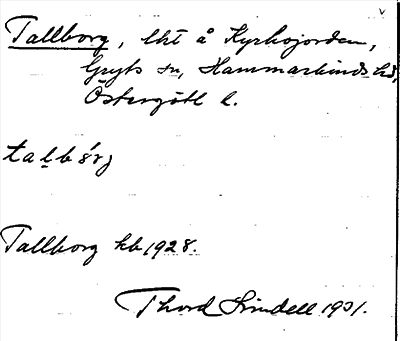 Tallborg, lht å Kyrkojorden,
Gryts sn, Hammarkinds hd,
Östergötl l.
Tallborg kb 1928.
Thord Lindell 1931.